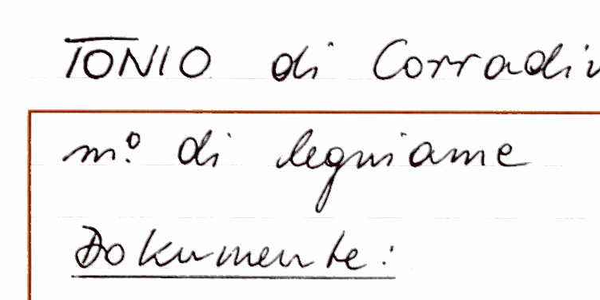 TONIO di Corradi
m.º di legniame
Dokumente: